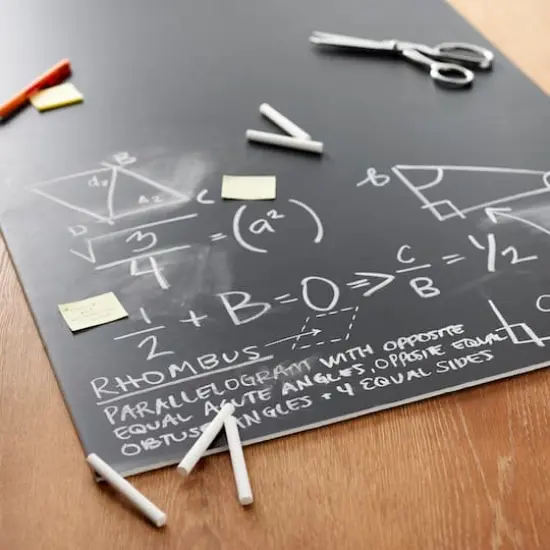 B
d2
A2
C
D
b
√3/4 = (a²)
1/2 + B = 0 => C/B = 1/2
RHOMBUS
PARALLELOGRAM WITH OPPOSITE
EQUAL ACUTE ANGLES, OPPOSIE EQUAL
OBTUSE ANGLES + 4 EQUAL SIDES